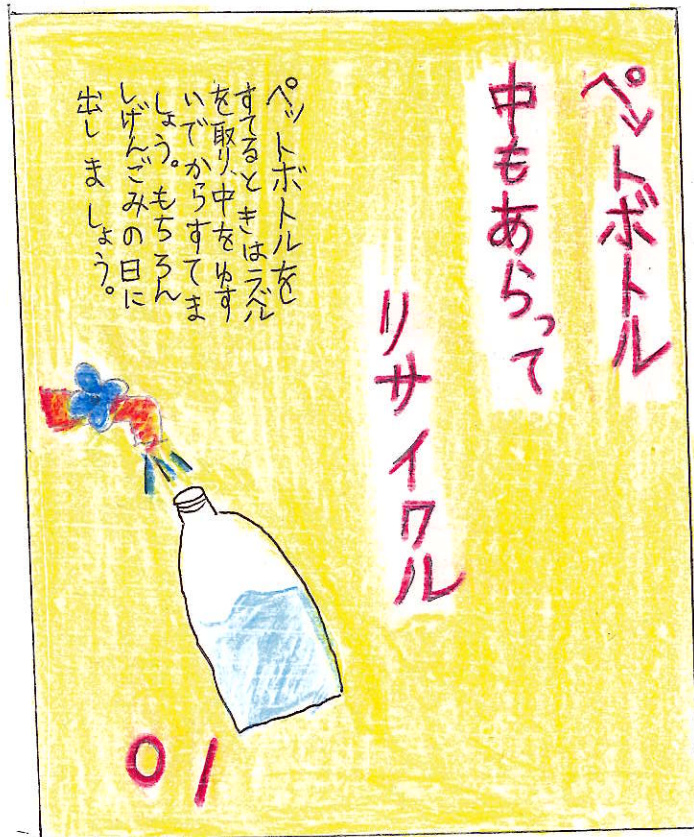 ペットボトル
中もあらって
リサイクル
ペットボトルを
すてるときはラベル
を取り、中をゆす
いでからすてま
しょう。もちろん
しげんごみの日に
出しましょう。
01